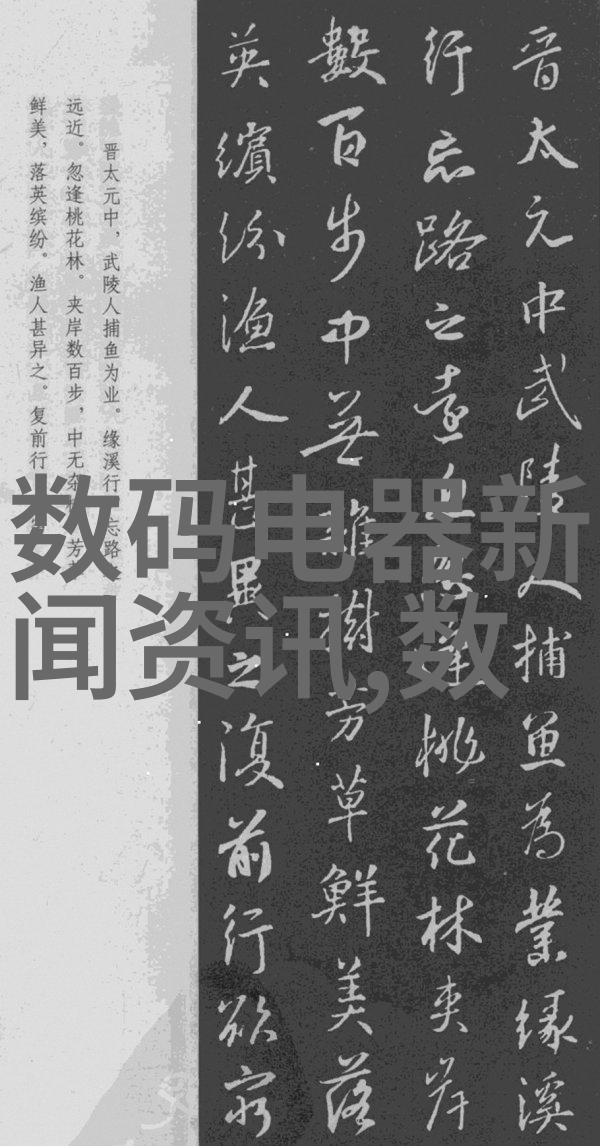 晋太元中武陵人捕鱼为業缘溪
行忘路之遠近忽逢桃花林夹岸
數百步中無雜樹芳草鮮美落
英繽纷渔人甚異之復前行欲穷
晋太元中，武陵人捕鱼为业。缘溪行，忘路之
远近。忽逢桃花林。夹岸数百步，中无杂树，芳草
鲜美，落英缤纷。渔人甚异之。复前行
数码电器新
闻资讯,数